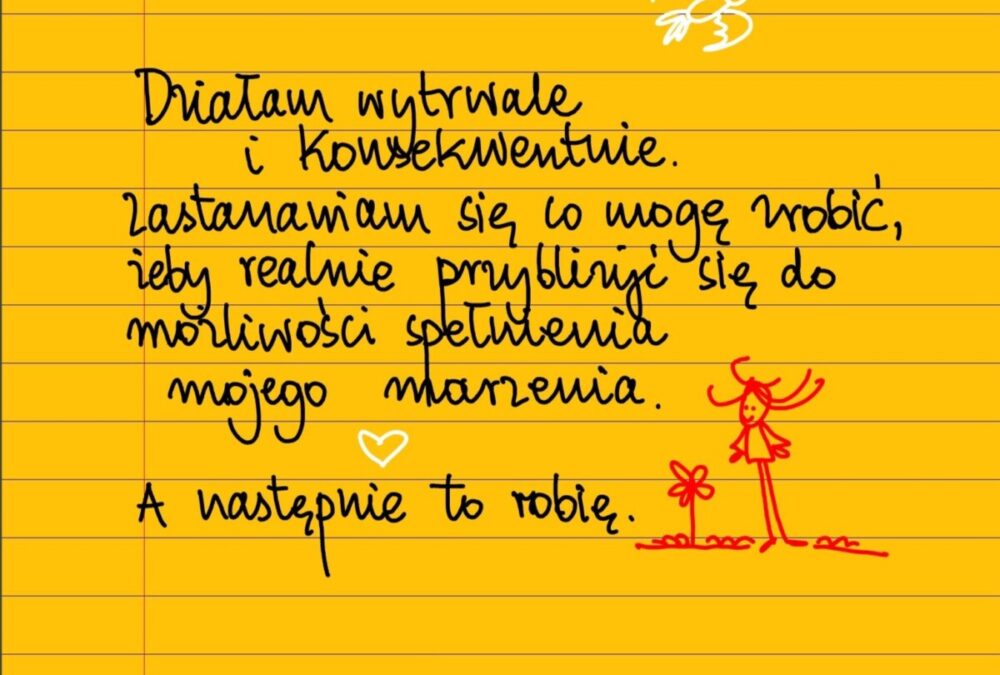 Działam wytrwale
i konsekwentnie.
Zastanawiam się co mogę zrobić,
żeby realnie przybliżyć się do
możliwości spełnienia
mojego marzenia.
A następnie to robię.